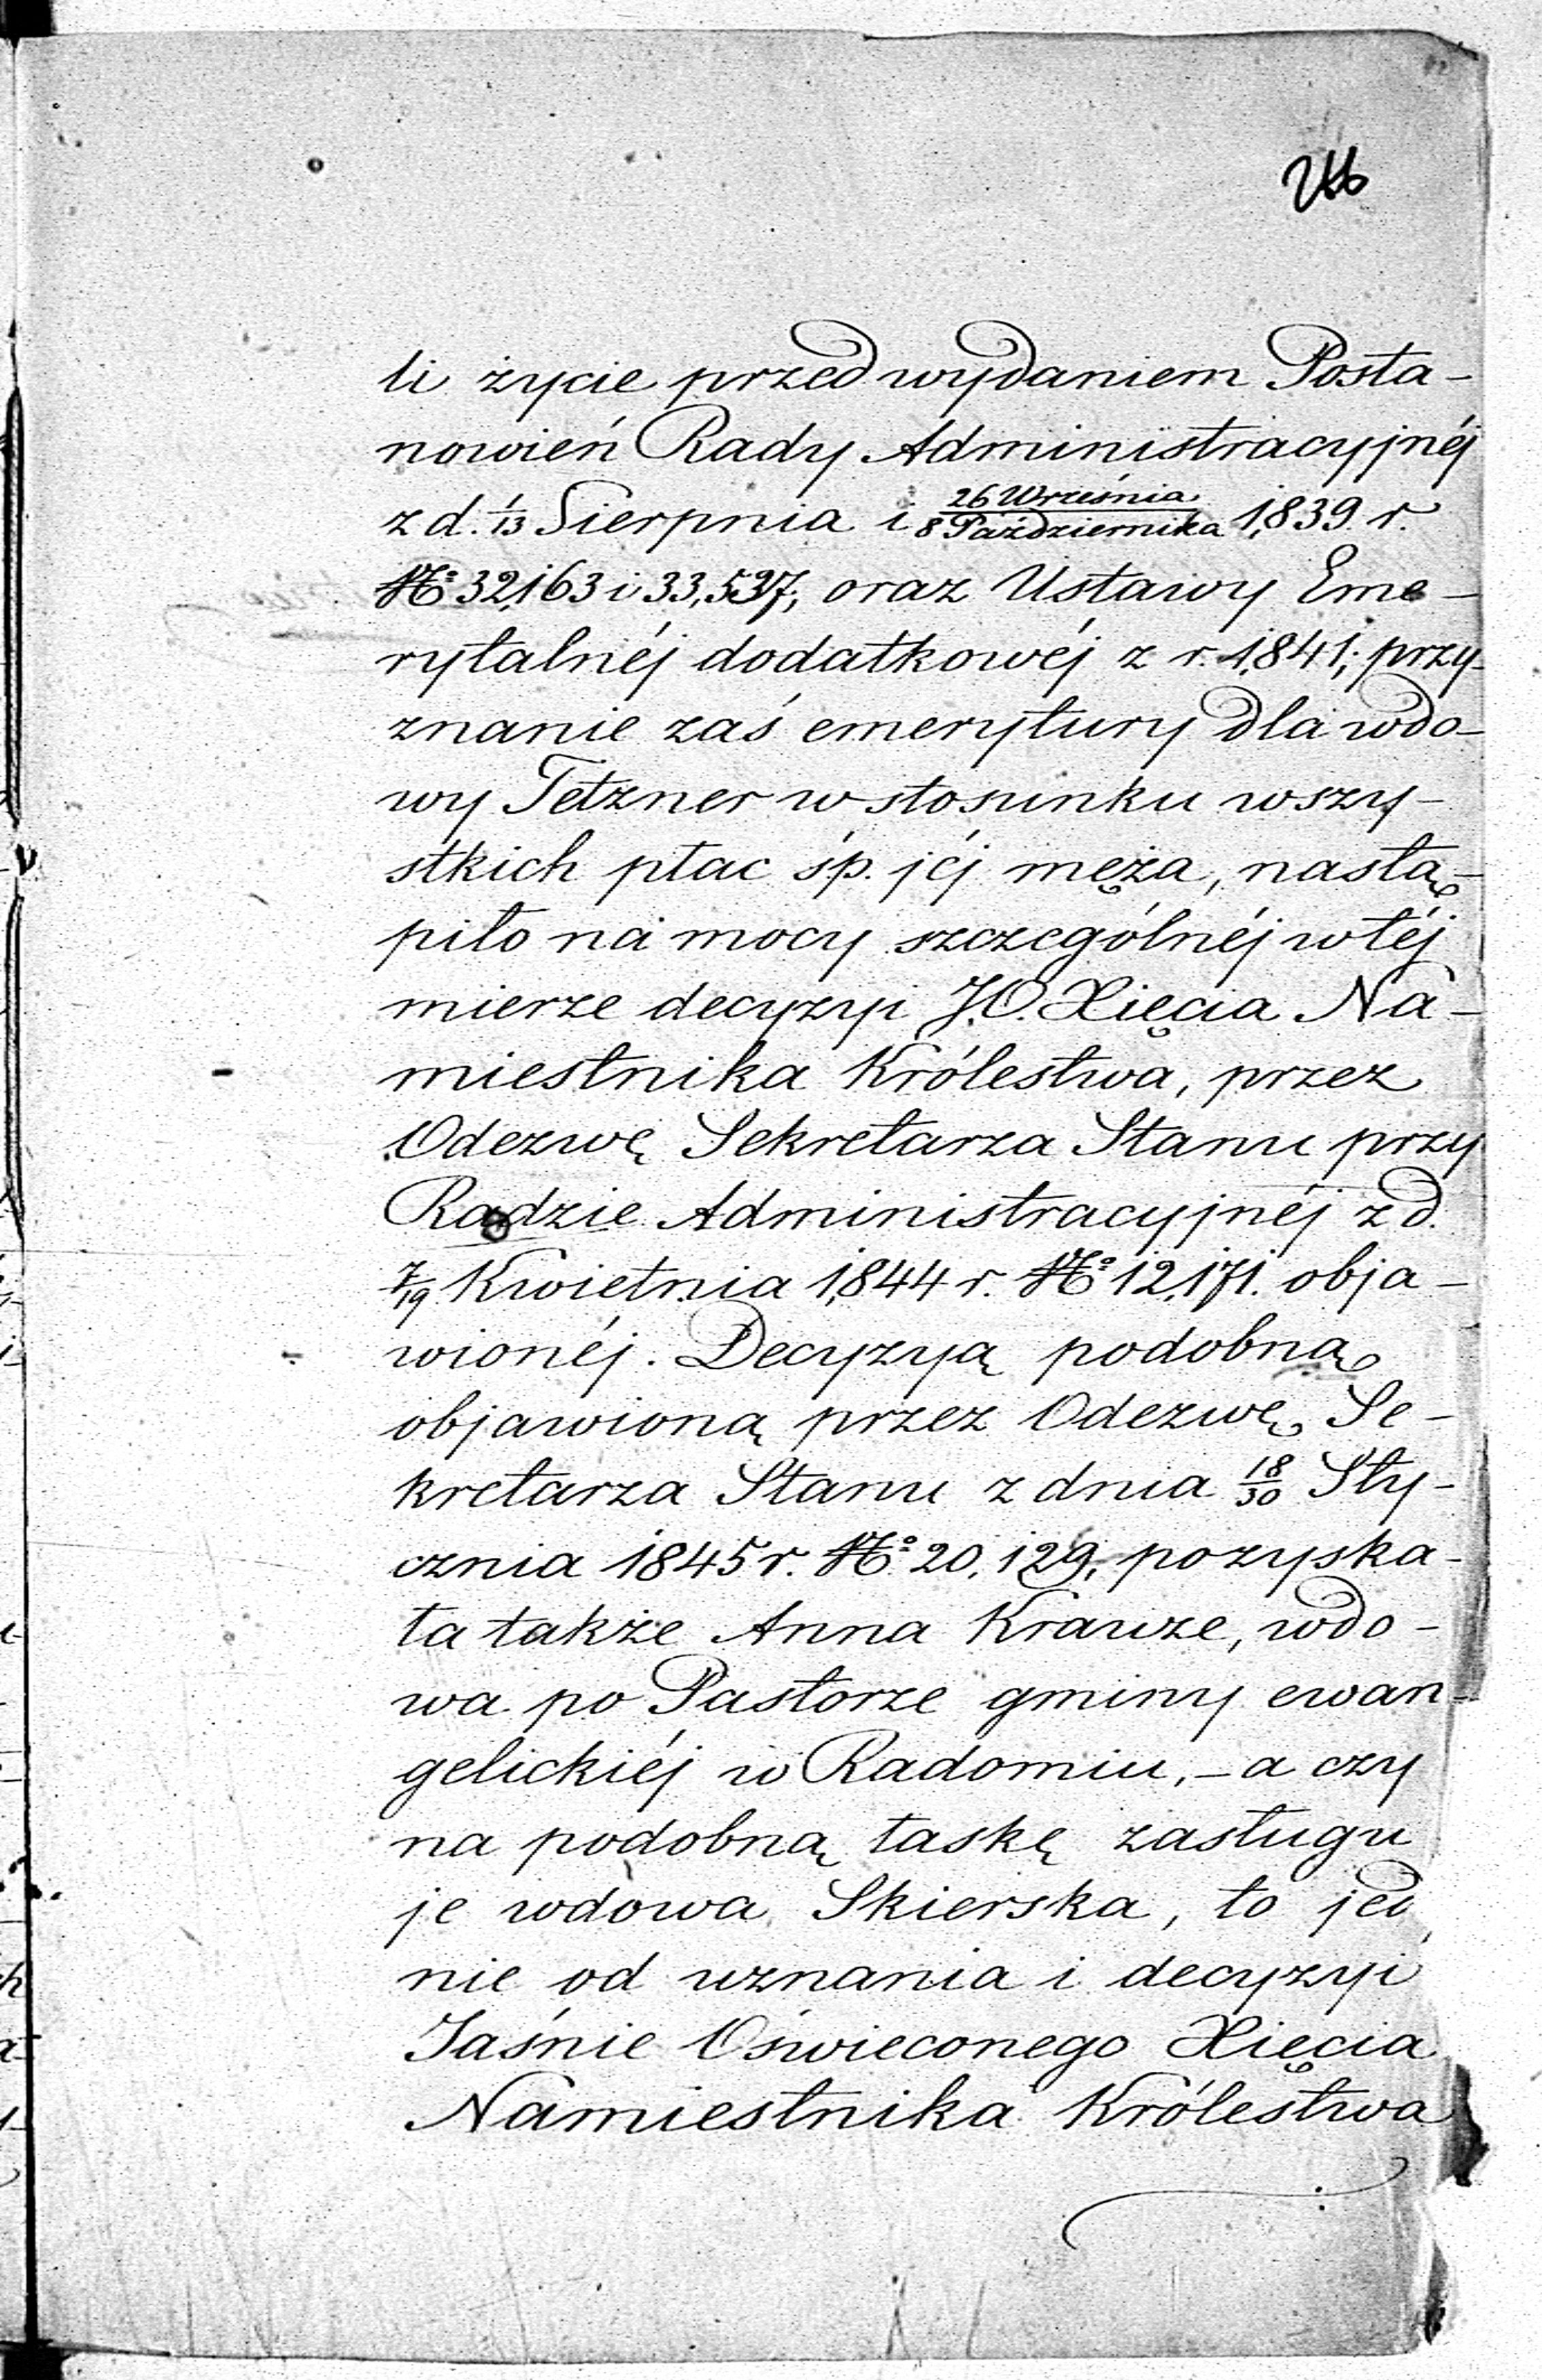 li życie przed wydaniem Posta-
nowień Rady Administracyjnéj
z d. 1/13 Sierpnia i 26 Września/8 Października 1839. r.
№ 32,163 i 33,537, oraz Ustawy Eme-
rytalnéj dodatkowéj z r. 1841; przy-
znanie zaś emerytury dla wdo-
wy Tetzner w stosunku wszy-
stkich płac ś.p. jéj męża, nastą-
piło na mocy szczególnéj w téj
mierze decyzyi J.O. Xięcia Na-
miestnika Królestwa, przez
Odezwę Sekretarza Stanu przy
Radzie Administracyjnéj z d.
7/19 Kwietnia 1844 r. № 12,171. obja-
wionéj. Decyzyą podobną
objawioną przez Odezwę Se-
kretarza Stanu z dnia 18/30 Sty-
cznia 1845 r. № 20,129, pozyska-
ła także Anna Krauze, wdo-
wa po Pastorze gminy ewan-
gelickiéj w Radomiu, - a czy
na podobną łaskę zasługu
je wdowa Skierska, to jed
nie od uznania i decyzyi
Jaśnie Oświeconego Xięcia
Namiestnika Królestwa